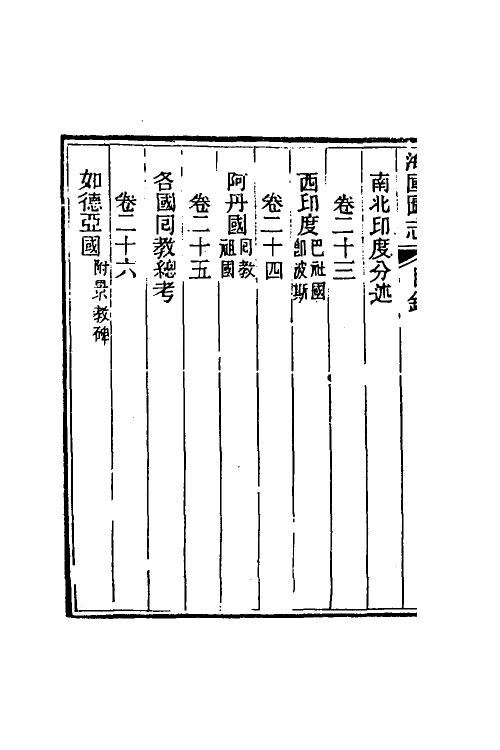 海國圖志 目錄
南北印度分述
卷二十三
西印度巴社國卽波斯
卷二十四
阿丹國囘教祖國
卷二十五
各國囘教總考
卷二十六
如德亞國附景教碑